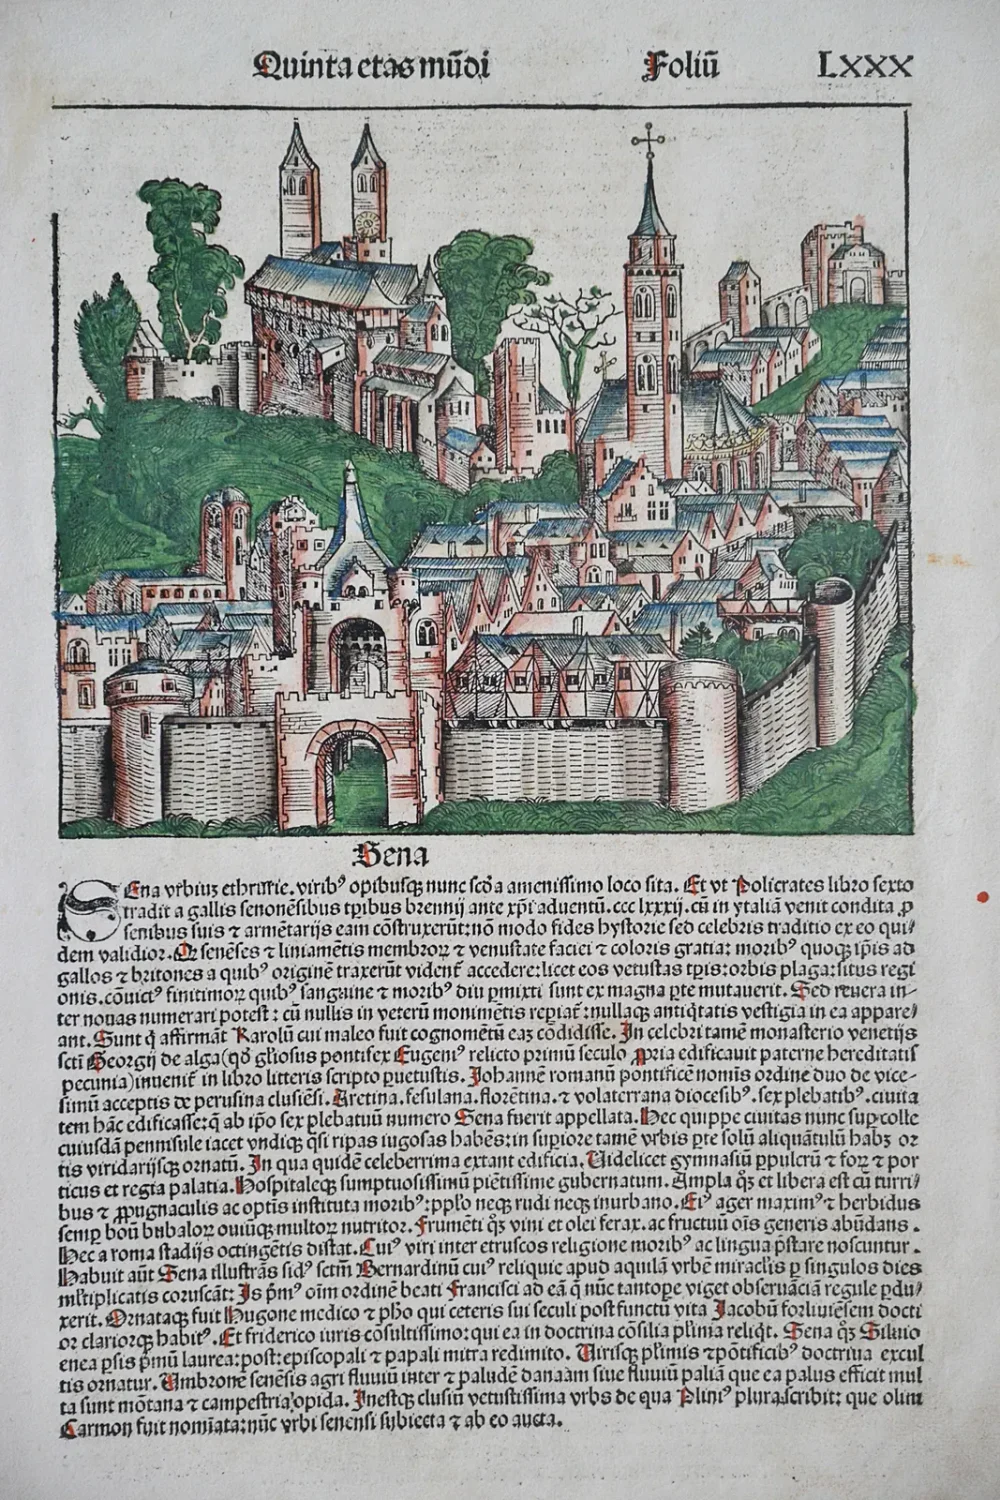 Quinta etas mūdi Foliū LXXX
Sena
SEna vrbiuʒ ethrurie. viribꝰ opibusqꝫ nunc scďa amenissimo loco sita. Et vt Policrates libro sexto
tradit a gallis senonēsibus tꝑibus brennij ante xp̄i aduentū. ccc lxxxij. cū in ytaliā venit condita ꝓ
senibus suis ⁊ armētarijs eam cōstruxerūt: nō modo fides hystorie sed celebris traditio ex eo qui⸗
dem validior. Qꝫ senēses ⁊ liniamētis membroꝝ ⁊ venustate faciei ⁊ coloris gratia: moribꝰ quoqꝫ ip̄is ad
gallos ⁊ britones a quibꝰ originē traxerūt vident̄ accedere: licet eos vetustas tꝑis: orbis plaga: situs regi
onis. cōuictꝰ finitimoꝝ quibꝰ sanguine ⁊ moribꝰ diu ꝑmixti sunt ex magna ꝑte mutauerit. Sed reuera in⸗
ter nouas numerari potest: cū nullis in veterū monimētis reꝑiat̄: nullaqꝫ antiq̇tatis vestigia in ea appare⸗
ant. Sunt q̇ affirmāt Karolū cui maleo fuit cognomētū eaʒ cōdidisse. In celebri tamē monasterio venetijs
scti Georgij de alga (qď gl̄iosus pontifex Eugeniꝰ relicto primū seculo ꝓpria edificauit paterne hereditatis
pecunia) inuenit̄ in libro litteris scripto ꝑuetustis. Johannē romanū pontificē nomīs ordine duo de vice⸗
simū acceptis de perusina clusiēsi. Aretina. fesulana. florētina. ⁊ volaterrana diocesibꝰ. sex plebatibꝰ. ciuita
tem hāc edificasse: q̄ ab ip̄o sex plebatuū numero Sena fuerit appellata. Hec quippe ciuitas nunc suꝑ colle
cuiusdā pennisule iacet vndiqꝫ q̄si ripas iugosas habēs: in suꝑiore tamē vrbis ꝑte solū aliquātulū habʒ or
tis viridarijsqꝫ ornatū. In qua quidē celeberrima extant edificia. Uidelicet gymnasiū ꝑpulcrū ⁊ foꝝ ⁊ por
ticus et regia palatia. Hospitaleqꝫ sumptuosissimū piētissime gubernatum. Ampla q̊ꝫ et libera est cū turri⸗
bus ⁊ ꝓpugnaculis ac optīs instituta moribꝰ: ꝑpl̄o neqꝫ rudi neqꝫ inurbano. Eiꝰ ager maximꝰ ⁊ herbidus
semꝑ boū bubaloꝝ ouiūqꝫ multoꝝ nutritor. Frumēti q̊ꝫ vini et olei ferax. ac fructuū oīs generis abūdans.
Hec a roma stadijs octingētis distat. Cuiꝰ viri inter etruscos religione moribꝰ ac lingua p̄stare noscuntur.
Habuit aūt Sena illustrās sidꝰ sctm̄ Bernardinū cuiꝰ reliquie apud aquilā vrbē miraclis ꝑ singulos dies
ml̄tiplicatis coruscāt: Is p̄mꝰ oīm ordinē beati Francisci ad eā q̄ nūc tantope viget obseruāciā regule ꝑdu⸗
xerit. Ornataqꝫ fuit Hugone medico ⁊ pho qui ceteris sui seculi post functū vita Jacobū forliuiēsem docti
or clariorqꝫ habitꝰ. Et friderico iuris cōsultissimo: qui ea in doctrina cōsilia pl̄ima reliq̇t. Sena q̊ꝫ Siluio
enea p̄sis p̄mū laurea: post: episcopali ⁊ papali mitra redimito. Uirisqꝫ pl̄imis ⁊ pōtificibꝰ doctrina excul
tis ornatur. Umbronē senēsis agri fluuiū inter ⁊ paludē danaam siue fluuiū paliā que ea palus efficit mul
ta sunt mōtana ⁊ campestria opida. Inestqꝫ clusiū vetustissima vrbs de qua Pliniꝰ plura scribit: que olim
Carmon fuit nomīata: nūc vrbi senensi subiecta ⁊ ab eo aucta.